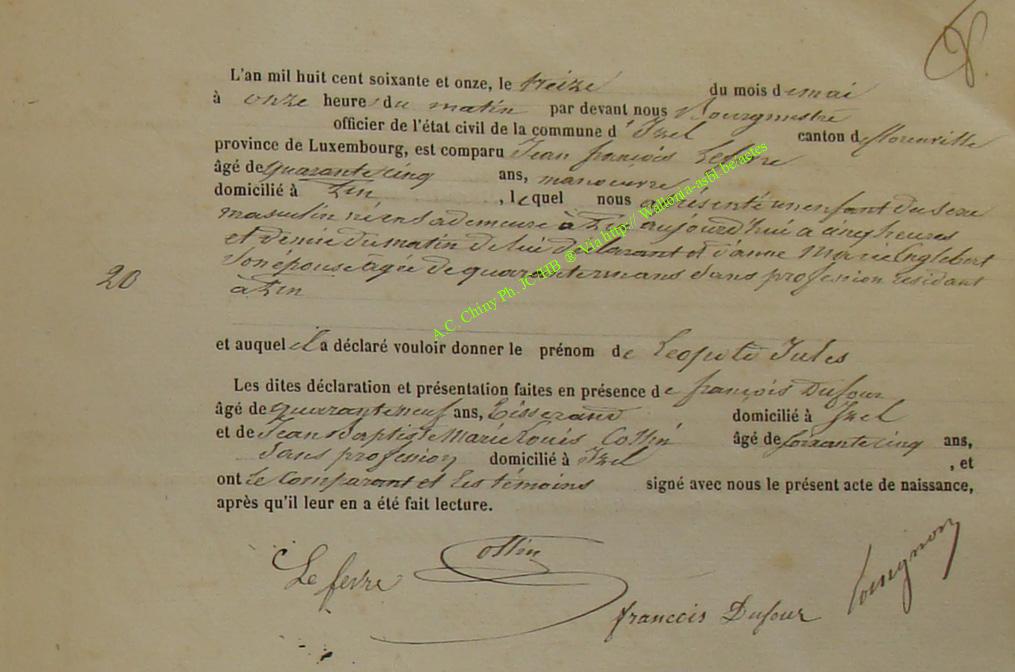 L'an mil huit cent soixante et onze, le treize du mois de mai
à onze heures du matin par devant nous Bourgmestre
officier de l'état civil de la commune d'Izel canton de florenville
province de Luxembourg, est comparu Jean françois Lefevre
âgé de quarante cinq ans, manoeuvre
domicilié à Pin, lequel nous a présenté un enfant du sexe
masculin né en sa demeure à Pin aujourd'hui à cinq heures
et demie du matin de lui déclarant et d'anne Marie Englebert
son épouse âgée de quarante un ans sans profession résidant
à Pin
20
et auquel il a déclaré vouloir donner le prénom de Leopold Jules
Les dites déclaration et présentation faites en présence de françois Dufour
âgé de quarante neuf ans, tisserand domicilié à Izel
et de Jean Baptiste Marie Louis Collin âgé de soixante cinq ans,
sans profession domicilié à Izel, et
ont le comparant et les témoins signé avec nous le présent acte de naissance,
après qu'il leur en a été fait lecture.
Lefevre Collin
francois Dufour
A.C. Chiny Ph. JC-HB @ Via http:// Wallonia-asbl.be/actes